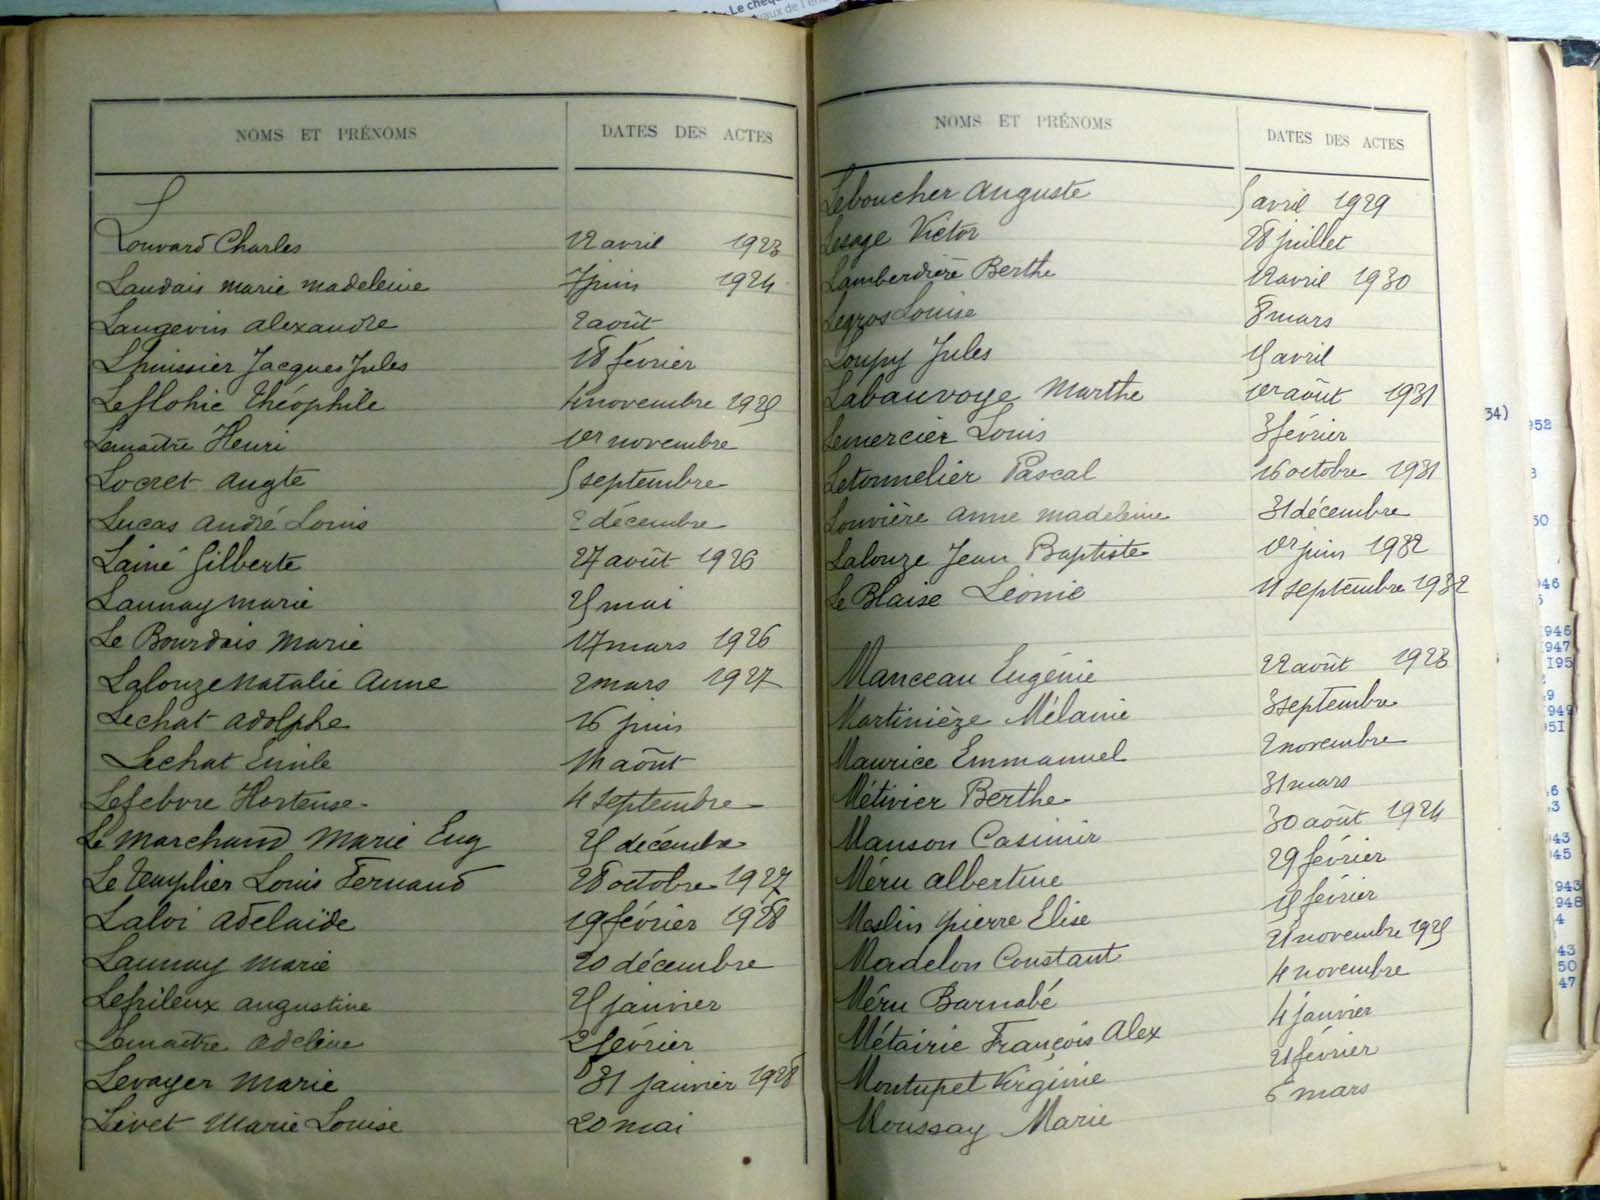 Le chèq
aux de l'éne
NOMS ET PRÉNOMS DATES DES ACTES
L
Louvard Charles 12 avril 1923
Landais marie madeleine 7 juin 1924
Langevin alexandre 2 août
Lhuissier Jacques Jules 18 février
Le flohic Théophile 4 novembre 1925
Lemaitre Henri 1er novembre
Locret augte 5 septembre
Lucas andré Louis 2 décembre
Lainé Gilberte 27 août 1926
Launay marie 25 mai
Le Bourdais Marie 17 mars 1926
Lalouze Natalie Anne 2 mars 1927
Lechat adolphe 16 juin
Lechat Emile août
Lefebvre Hortense 4 septembre
Le Marchand Marie Eug 25 décembre
Le Templier Louis Fernand 28 octobre 1927
Laloi adelaïde 19 février 1928
Launay marie 20 décembre
Lepileux augustine 25 janvier
Lemaître adeline 2 février
Levayer Marie 31 janvier 1928
Livet Marie Louise 20 mai
NOMS ET PRÉNOMS DATES DES ACTES
Leboucher auguste 5 avril 1929
Lesage Victor 28 juillet
Lamberdière Berthe 12 avril 1930
Legros Louise 8 mars
Loupy Jules 15 avril
Labauvoye Marthe 1er août 1931
Lemercier Louis 3 février
Letonnelier Pascal 16 octobre 1931
Louvière anne madeleine 31 décembre
Lalouze Jean Baptiste 1er juin 1932
Le Blaise Léonie 11 septembre 1932
Manceau Eugénie 22 août 1923
Martinièze Mélanie 3 septembre
Maurice Emmanuel 2 novembre
Métivier Berthe 31 mars
Manson Casimir 30 août 1924
Méru albertine 29 février
Meslin pierre Elise 15 février
Madelon Constant 21 novembre 1925
Méru Barnabé 4 novembre
Métairie François Alex 4 janvier
Montupet Virginie 21 février
Moussay Marie 6 mars
34)
952
3
50
946
5
946
1947
I95
9
1949
951
6
3
943
945
943
948
4
43
50
47